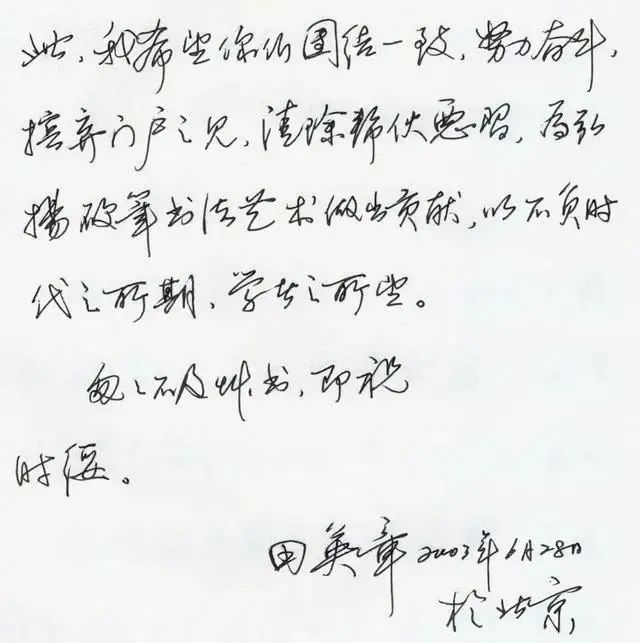 此,我希望你们团结一致,努力奋斗,
摈弃门户之见,清除帮伙恶习,为弘
揚硬筆书法艺术做出贡献,以不负时
代之所期、学者之所望。
匆匆不及草书,即祝
时绥。
田英章2003年6月28日
于北京